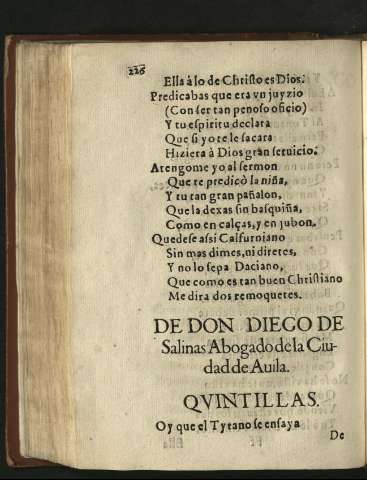 226
Ella à lo de Christo es Dios.
Predicabas que era vn juyzio
(Con ser tan penoso oficio)
Y tu espiritu declara
Que si yo te le sacara
Hiziera à Dios gran seruicio.
Atengome yo al sermon
Que te predicò la niña,
Y tu tan gran pañalon,
Que la dexas sin basquiña,
Como en calças, y en jubon.
Quedese assi Calfurniano
Sin mas dimes, ni diretes,
Y no lo sepa Daciano,
Que como es tan buen Christiano
Me dira dos remoquetes.
DE DON DIEGO DE
Salinas Abogado de la Ciu-
dad de Auila.
QVINTILLAS.
Oy que el Tyrano se ensaya
De